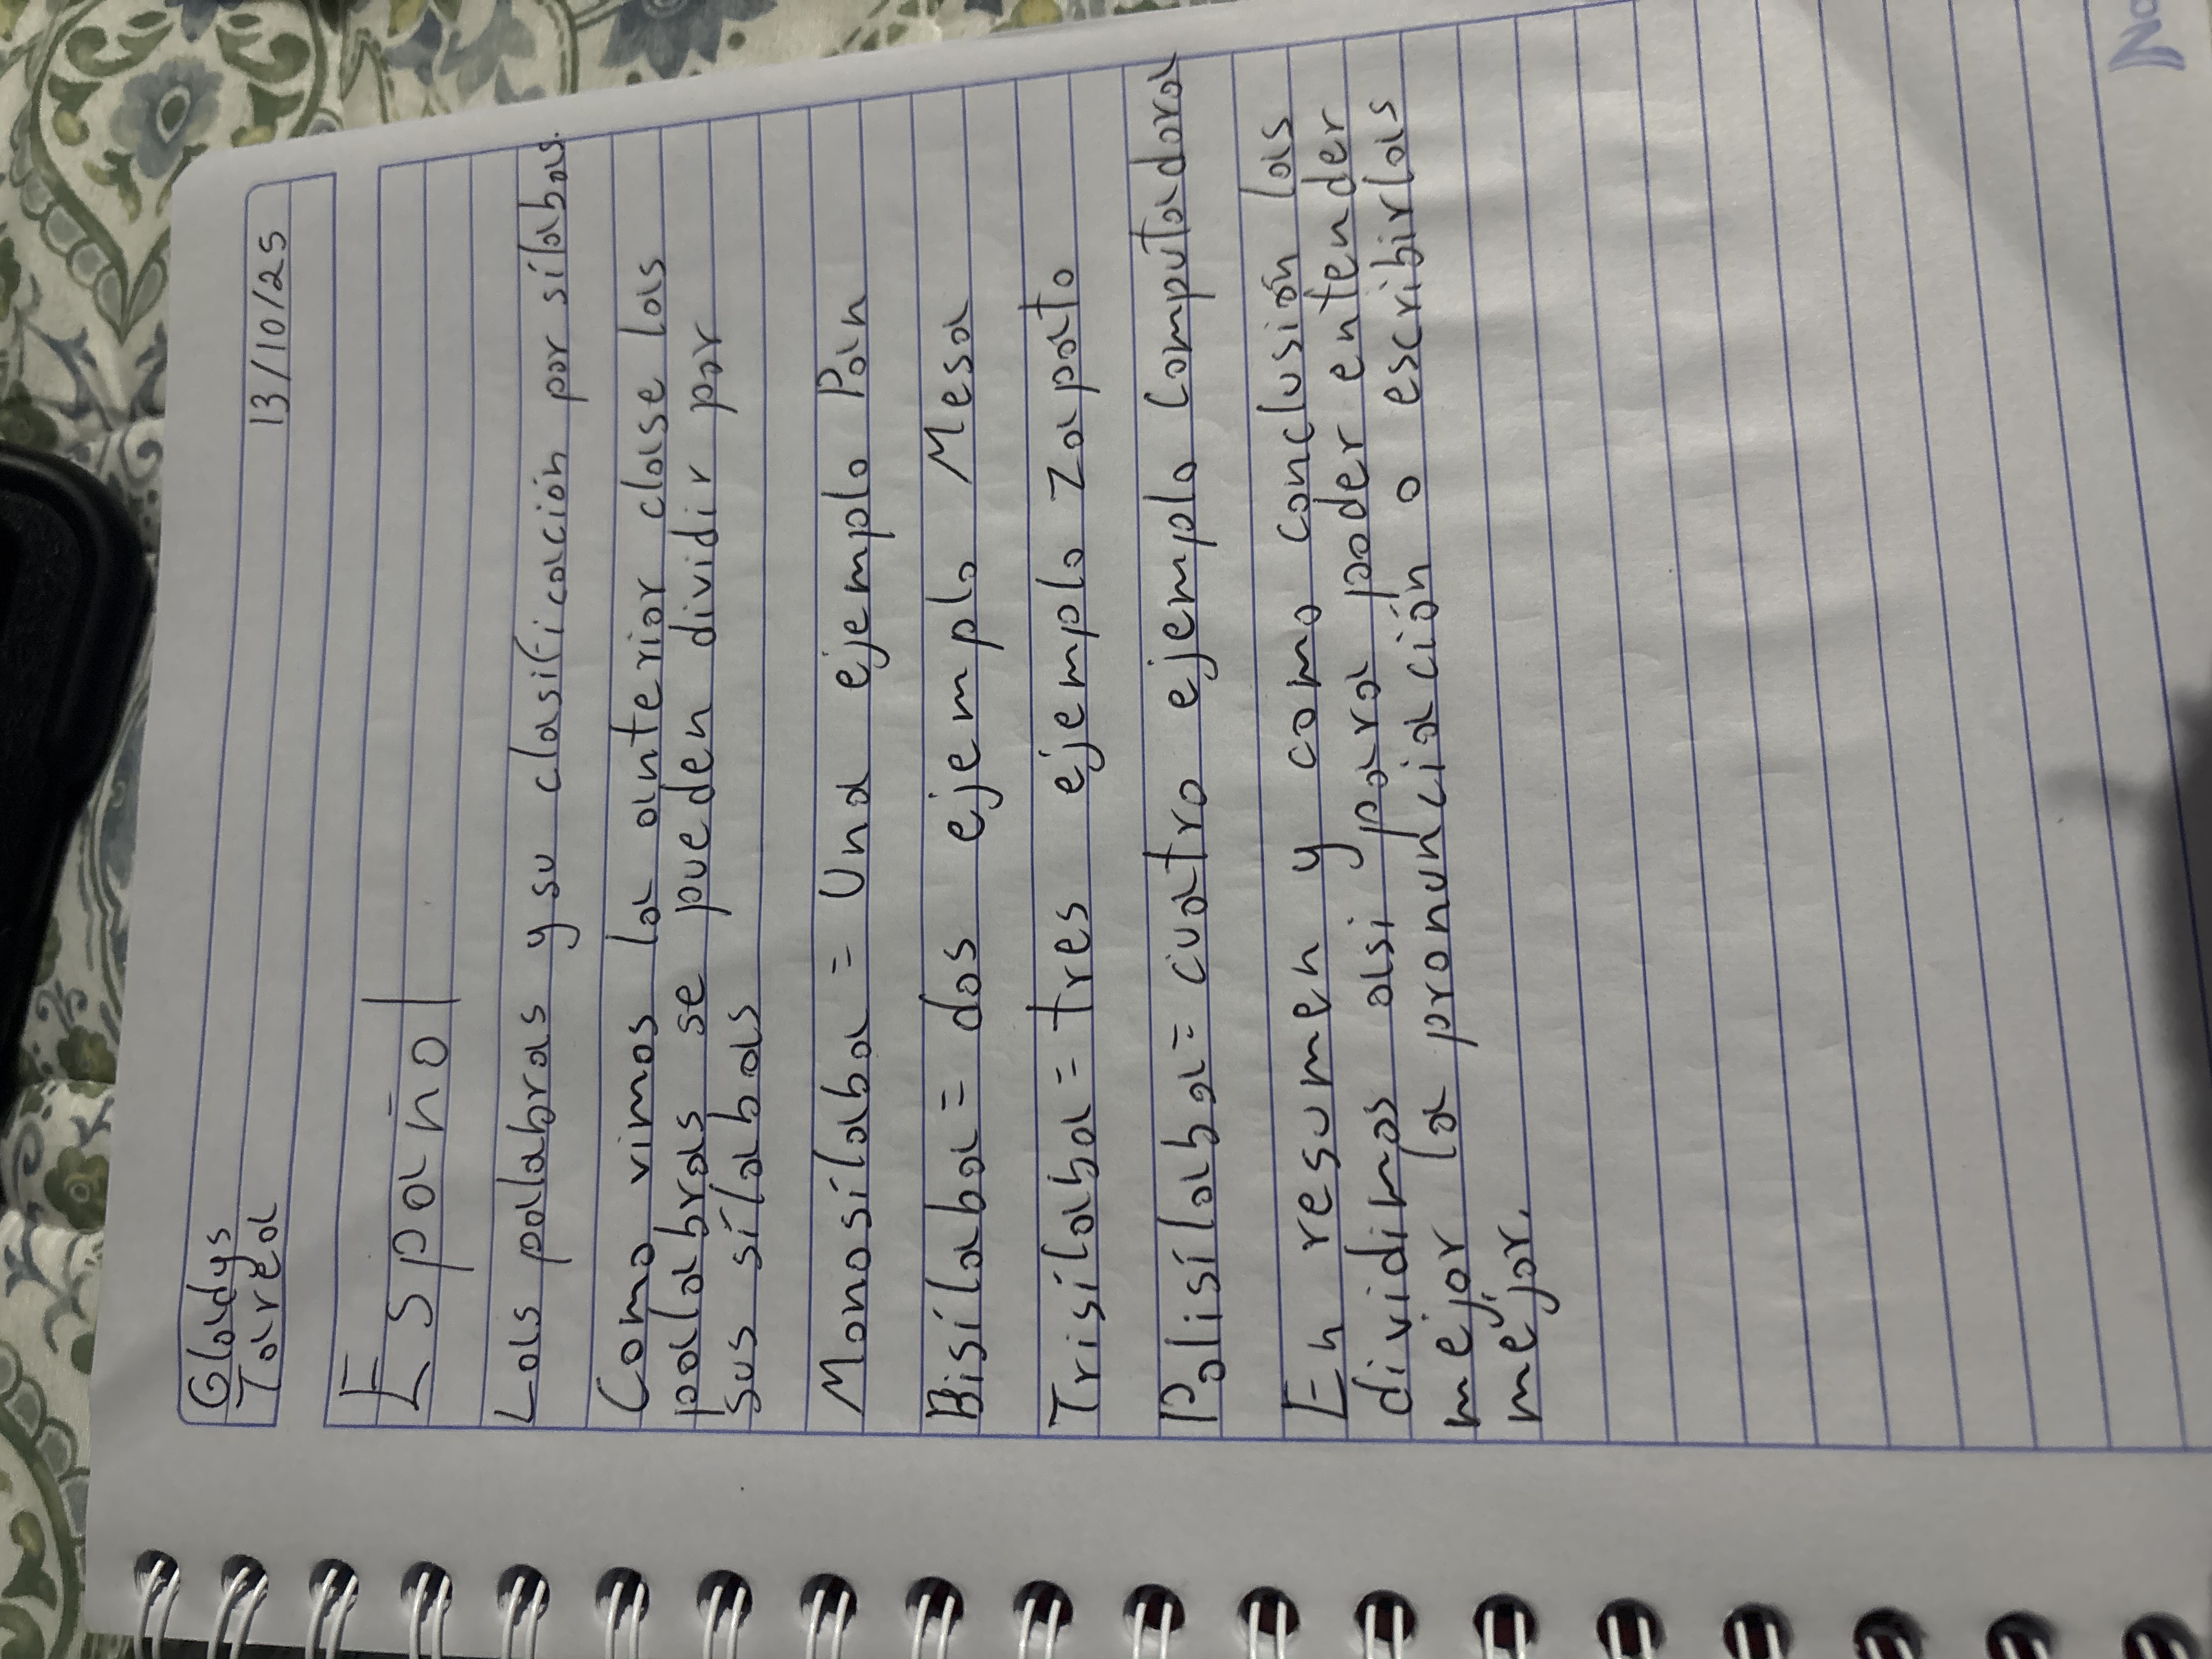 Gladys
Tarea
13/10/25
Español
Las palabras y su clasificación por sílabas.
Como vimos la anterior clase las
palabras se pueden dividir por
sus sílabas
Monosílaba = Una ejemplo Pan
Bisílaba = dos ejemplo Mesa
Trisílaba = tres ejemplo Zapato
Polisílaba = cuatro ejemplo Computadora
En resumen y como conclusión las
dividimos asi para poder entender
mejor la pronunciación o escribirlas
mejor.